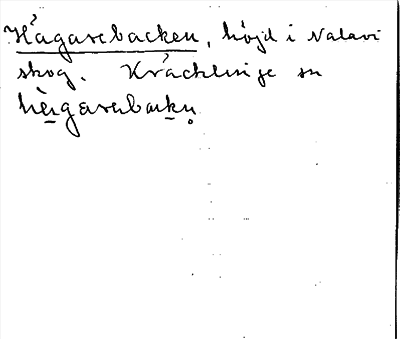 Hågarebacken, höjd i Nalavi
skog. Kräcklinge sn
hèigarebackn̥